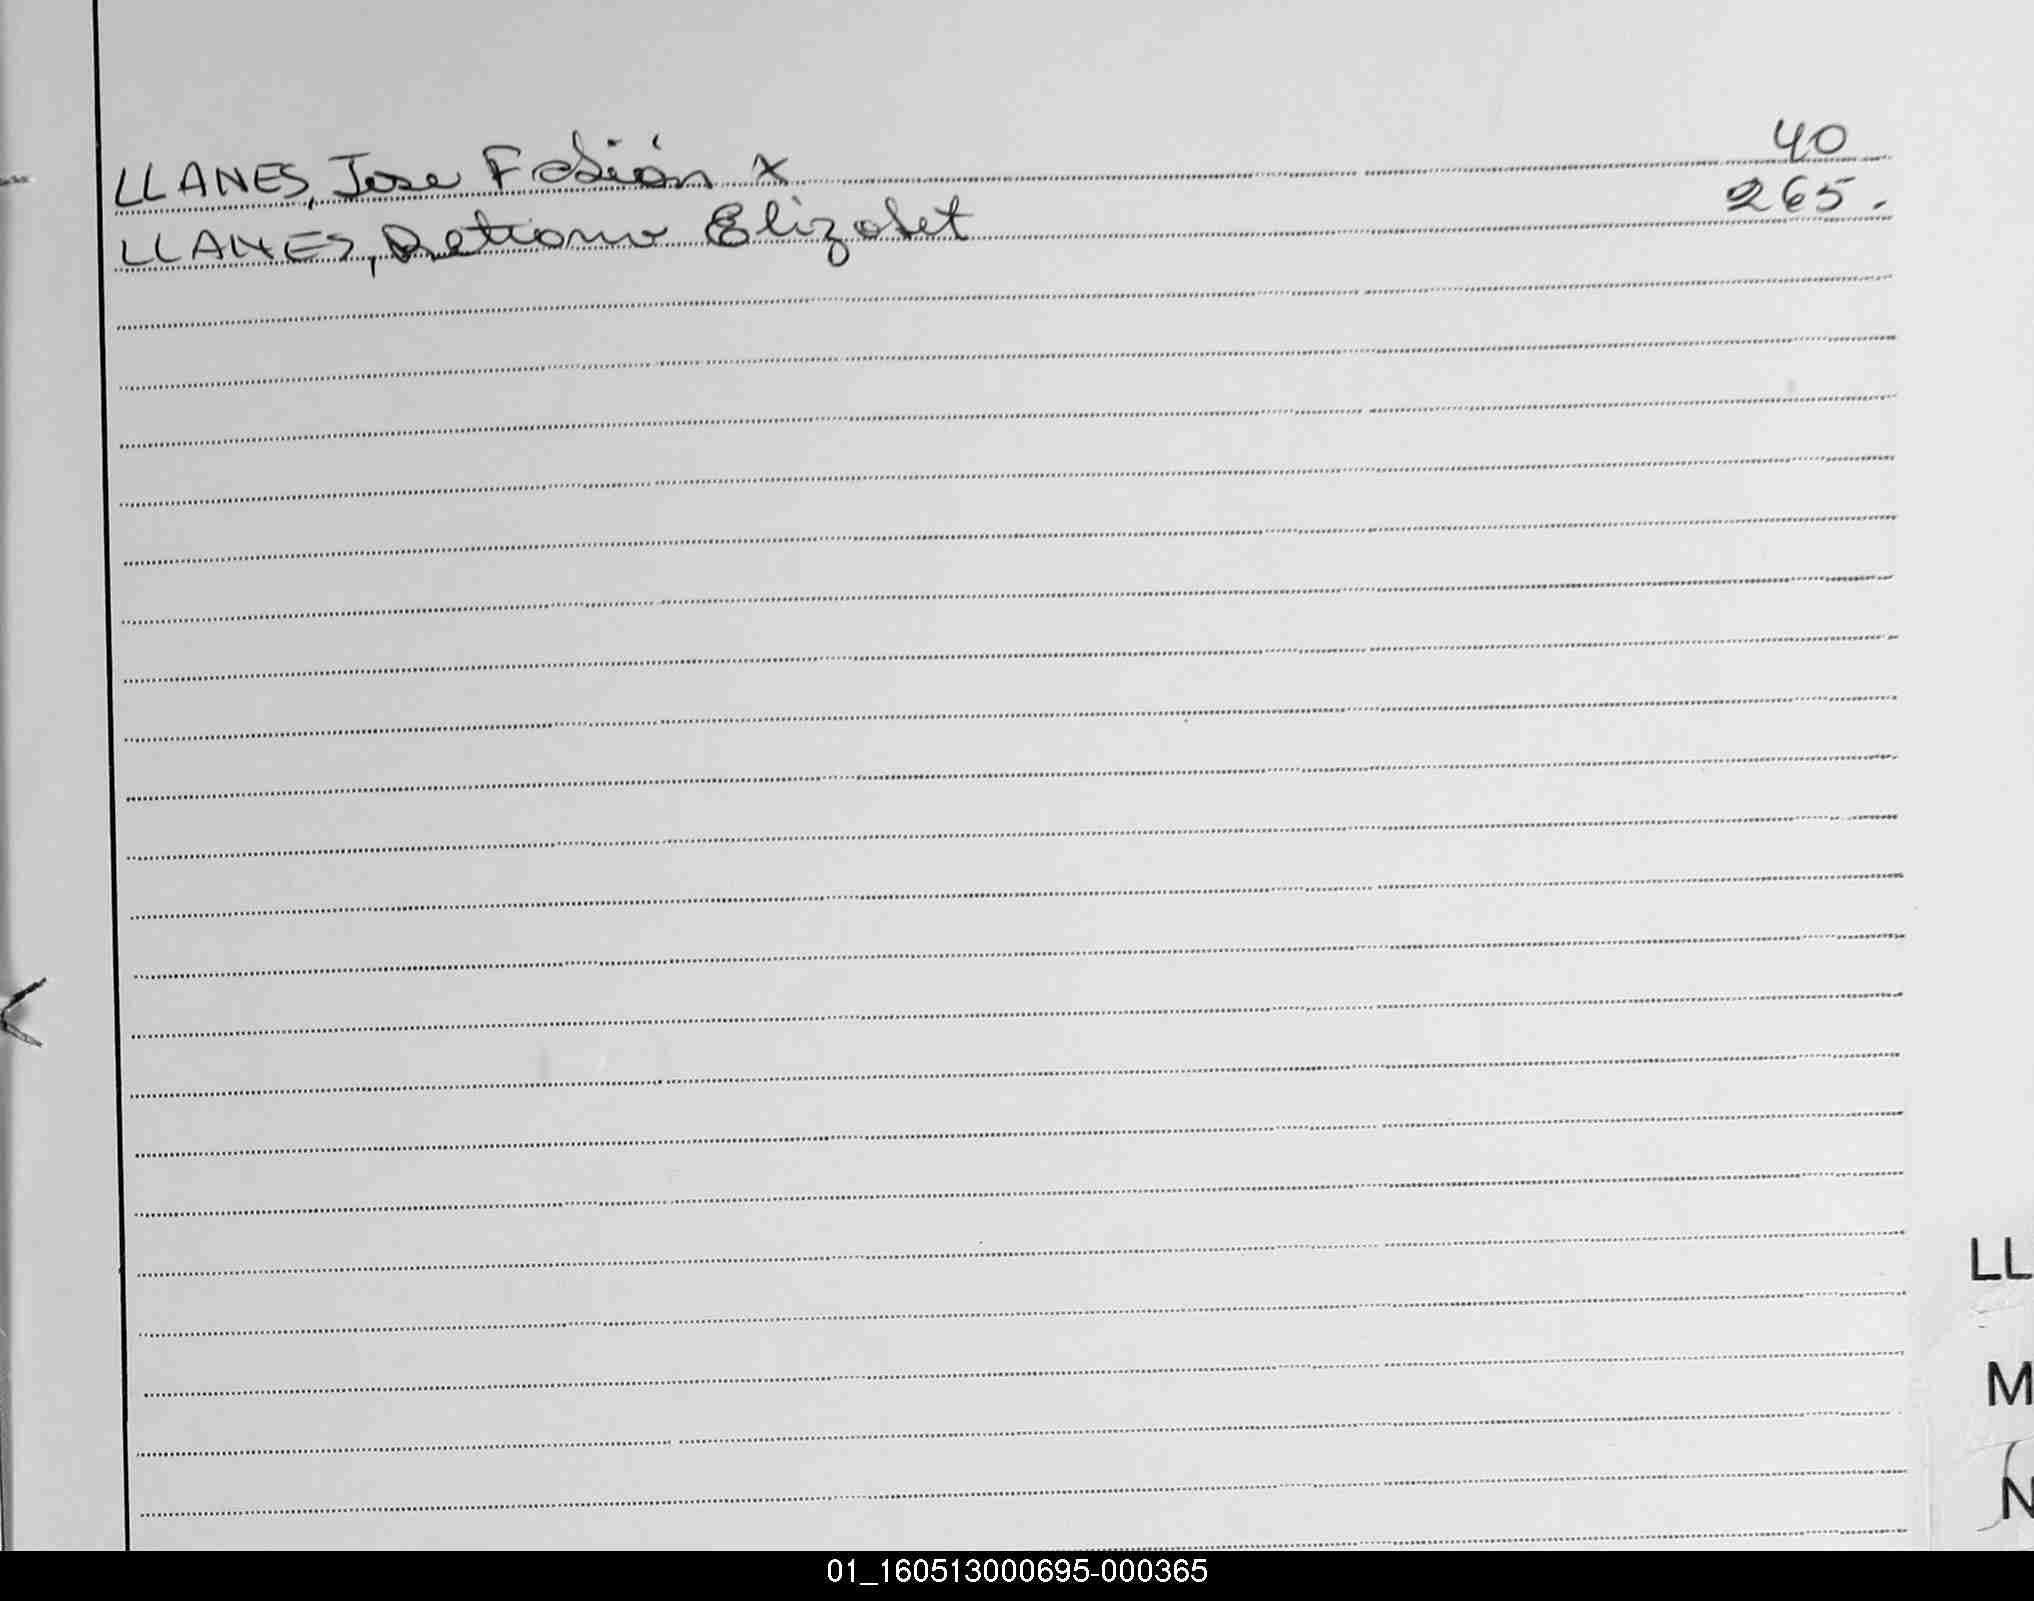 LLANES, Jose Fabián x 40
LLANES, Elizabet 265.
LL
M
N
01_160513000695-000365